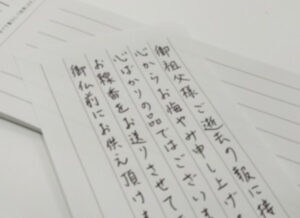 御祖父様ご逝去の報に接
心からお悔やみ申し上げ
心ばかりの品ではござい
お線香をお送りさせて
御仏前にお供え頂けま